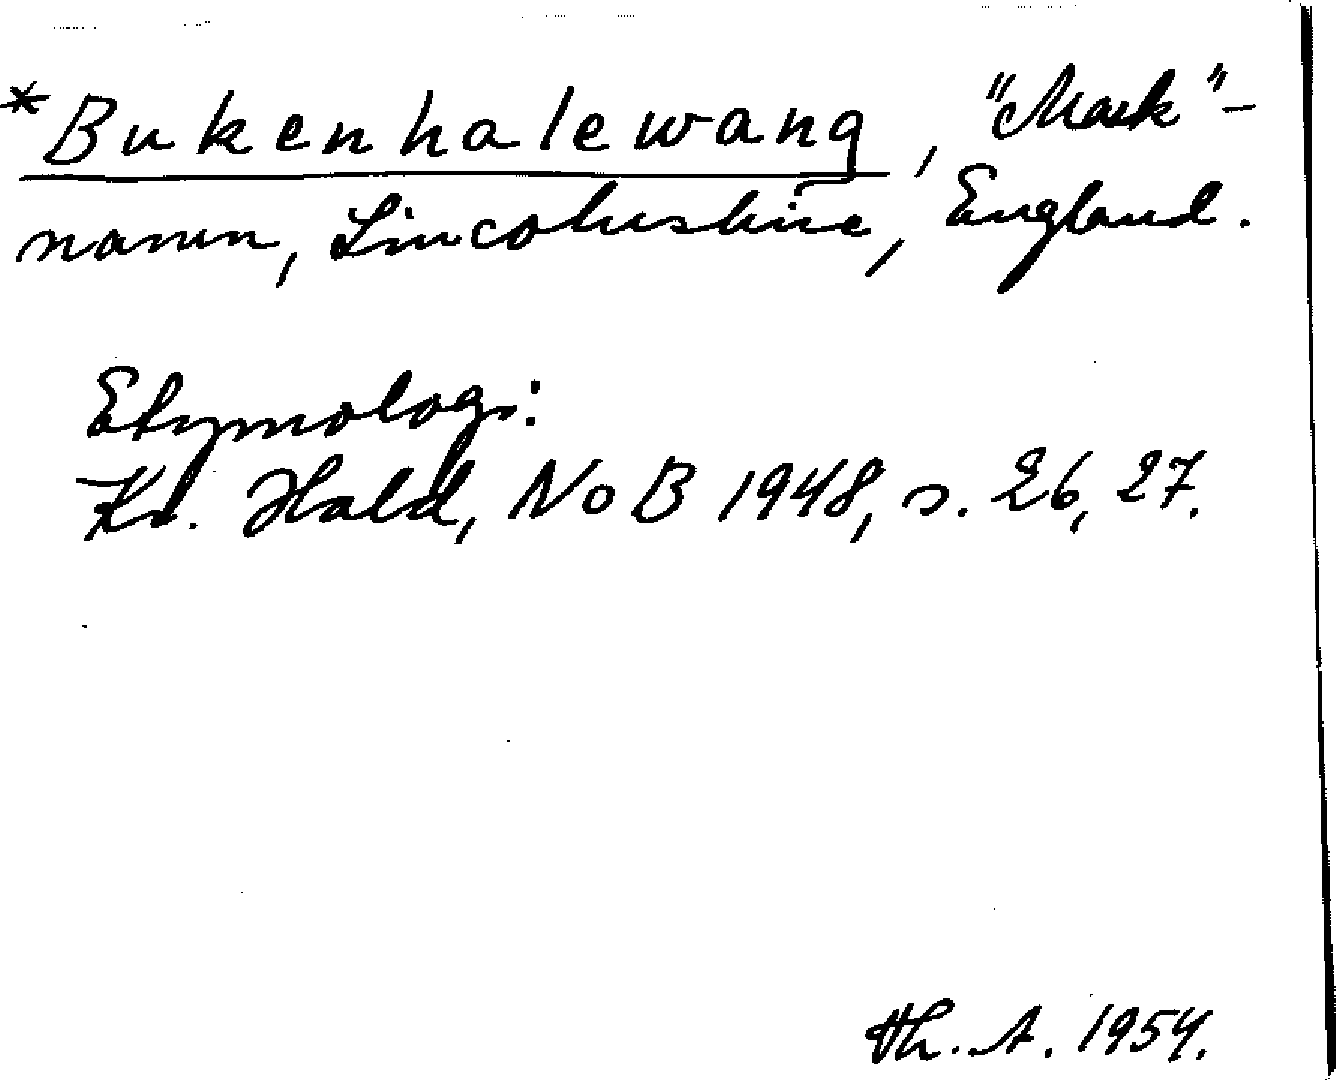 *Bukenhalewang, "Mark"-
namn, Lincolnshire, England.
Etymologi:
Kr. Hald, NoB 1948, s. 26, 27.
Th. A. 1954.